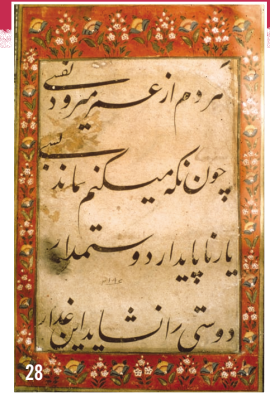 هر دم از عمر میرود نفسی
چون نکه میکنم نماند بسی
یار ناپایدار دوست مدار
دوستی را نشاید این غدار
28